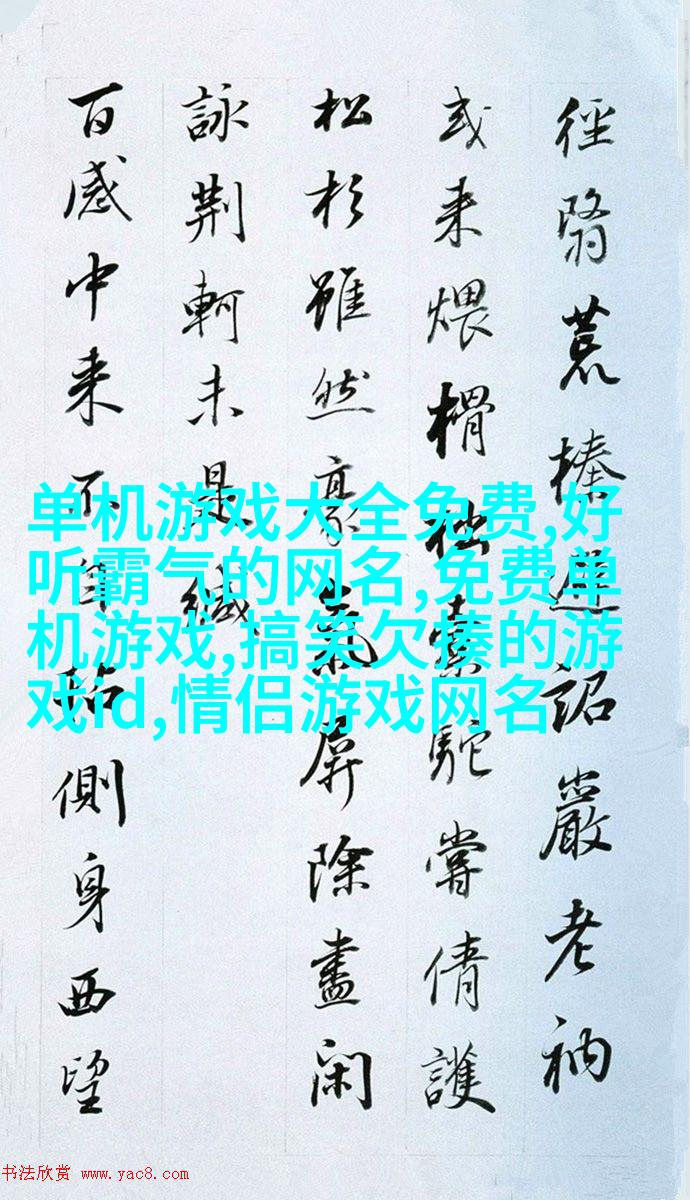 徑翳荒榛詔嚴老衲
或來煨榾柮橐駝嘗倩護
松杉雖然豪氣屏除盡閑
詠荆軻未是
百感中来不側身西望
单机游戏大全免费,好
听霸气的网名,免费单
机游戏,搞笑欠揍的游
戏id,情侣游戏网名
书法欣赏 www.yac8.com